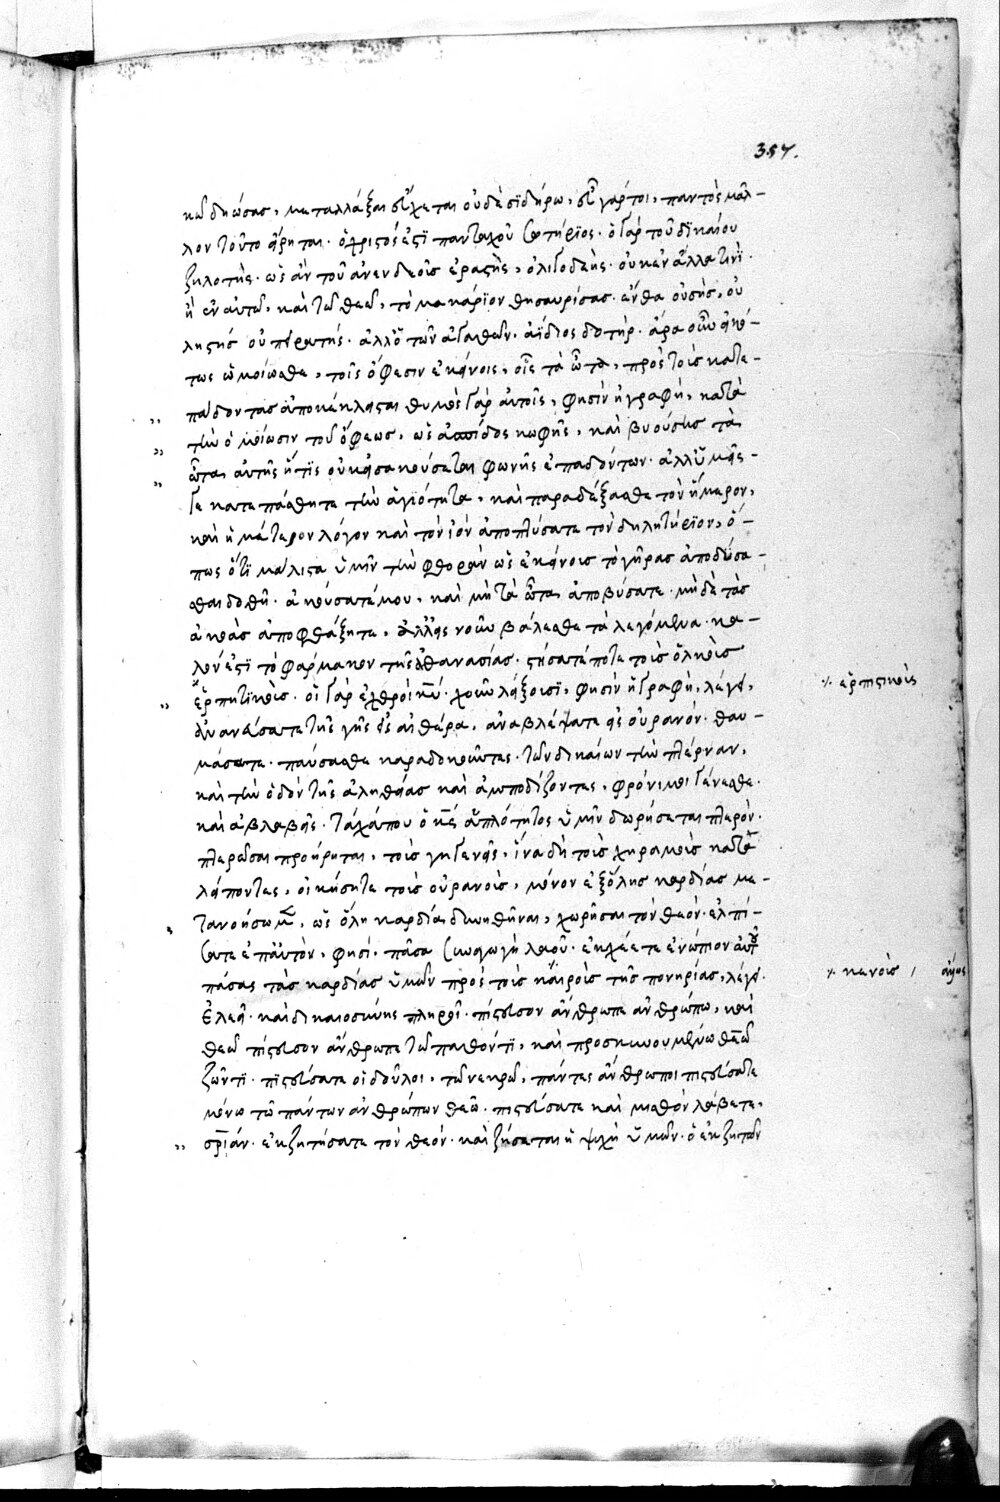 357.
κωδηώσας, μεταλλάξαι εὔχεται οὐδὲ σϊδήρω, εὖ γάρ τοι, παντὸς μᾶλ-
λον τοῦτο εἴρηται. ὁ χριστός ἐστϊ πανταχοῦ σωτήρϊος. ὁ γὰρ τοῦ δϊκαίου
ζηλοτὴς. ὡς ἂν τοῦ ἀνενδεοῦς ἐραστὴς, ὀλιγοδεὴς. οὐκ ἐν ἄλλω τινὶ.
ἢ ἐν αὐτῶ, καὶ τῶ θεῶ, τὸ μακάρϊον θησαυρίσας. ἔνθα οὐ σὴς, οὐ
ληστὴς οὐ πειρατής. ἀλλ' ὁ τῶν ἀγαθῶν. ἀΐδιος δοτὴρ. ἆρα οὖν εἰκό-
τως ὡμοίωσθε, τοῖς ὄφεσιν ἐκείνοις, οἷς τὰ ὦτα, πρὸς τοὺς κατε-
,, πάδοντας ἀποκέκλεισται θυμὸς γὰρ αὐτοῖς, φησὶν ἡ γραφὴ, κατὰ
,, τὴν ὁμοίωσιν τοῦ ὄφεως, ὡς ἀσπίδος κωφῆς, καὶ βυούσης τὰ
,, ὦτα αὐτῆς ἥτϊς οὐκ εἰσακούσεται φωνῆς ἐπαδόντων. ἀλλ' ὑμεῖς-
γε καταπάσθητε τὴν ἁγϊότητα, καὶ παραδέξασθε τὸν ἥμερον,
καὶ ἡμέτερον λόγον καὶ τὸν ἰὸν ἀποπτύσατε τὸν δηλητήρϊον, ὅ-
πως ὅτϊ μάλιστα ὑμῖν τὴν φθορὰν ὡς ἐκείνοις τὸ γῆρας ἀποδύσα-
σθαι δοθῆ. ἀκούσατέ μου, καὶ μὴ τὰ ὦτα ἀποβύσατε. μηδὲ τὰς
ἀκοὰς ἀποφράξητε, ἀλλ' εἰς νοῦν βάλεσθε τὰ λεγόμενα. κα-
λόν ἐστϊ τὸ φάρμακον τῆς ἀθανασίας. στήσατέ ποτε τοὺς ὁλκοὺς
,, ἑρπητϊκοὺς. οἱ γὰρ ἐχθροὶ κῦ. χοῦν λείξουσϊ, φησὶν ἡ γραφὴ, λέγει,
ἀνανεύσατε τῆς γῆς εἰς αἰθέρα. ἀναβλέψατε εἰς οὐρανόν. θαυ-
μάσατε. παύσασθε καραδοκοῦντες. τῶν δικαίων τὴν πτέρναν,
καὶ τὴν ὁδὸν τῆς ἀληθείας καὶ ἐμποδίζοντες, φρόνιμοι γένεσθε.
καὶ ἀβλαβεῖς. τάχα που ὁ κς ἁπλότητος ὑμῖν δωρήσεται πτερόν.
πτερῶσαι προήρηται, τοὺς γηγενεῖς, ἵνα δὴ τοὺς χηραμοὺς κατα
λείποντες, οἰκήσητε τοὺς οὐρανοὺς, μόνον ἐξ ὅλης καρδίας με-
τανοήσωμεν, ὡς ὅλη καρδία δυνηθῆναι, χωρῆσαι τὸν θεόν. ἐλπί-
,, σατε ἐπ' αὐτὸν, φησὶ. πᾶσα συναγωγὴ λαοῦ. ἐκχέετε ἐνώπιον αὐτοῦ
πάσας τὰς καρδίας ὑμῶν πρὸς τοὺς καιροὺς τῆς πονηρίας, λέγει.
ἐλεεῖ. καὶ δικαιοσύνης πληροῖ. πίστευσον ἄνθρωπε ἀνθρώπω, καὶ
θεῶ πίστευσον ἄνθρωπε τῶ παθόντϊ, καὶ προσκυνουμένω θεῶ
ζῶντϊ. πϊστεύσατε οἱ δοῦλοι, τῶ νεκρῶ, πάντες ἄνθρωποι πιστεύσατε
μόνω τῶ πάντων ἀνθρώπων θεῶ. πιστεύσατε καὶ μισθὸν λάβετε,
,, σρίαν. ἐκζητήσατε τὸν θεόν. καὶ ζήσεται ἡ ψυχὴ ὑμῶν. ὁ ἐκζητῶν
⁒ ἑρπιστικοὺς
⁒ κενοὺς /